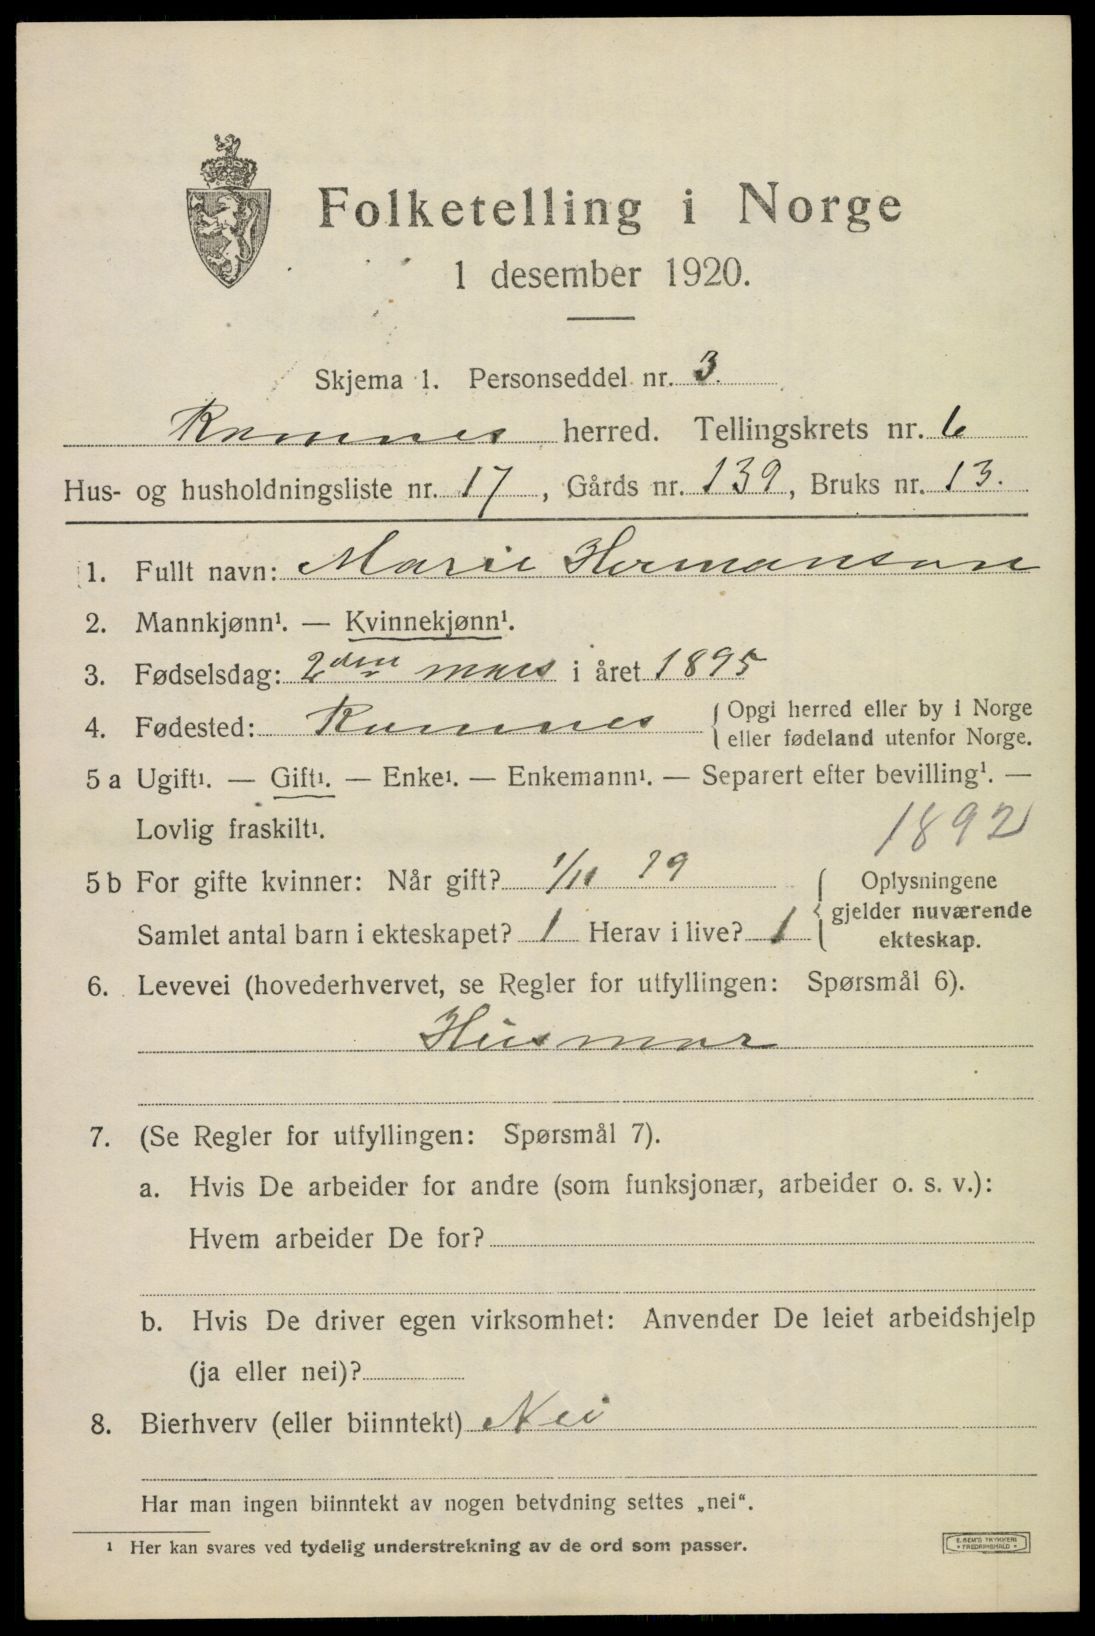 Folketelling i Norge
1 desember 1920.
Skjema 1. Personseddel nr. 3.
Ramnes herred. Tellingskrets nr. 6
Hus- og husholdningsliste nr. 17, Gårds nr. 139, Bruks nr. 13.
1. Fullt navn: Marie Hermansen
2. Mannkjønn¹. — Kvinnekjønn¹.
3. Fødselsdag: 2den mars i året 1895
4. Fødested: Ramnes { Opgi herred eller by i Norge
eller fødeland utenfor Norge.
5 a Ugift¹. — Gift¹. — Enke¹. — Enkemann¹. — Separert efter bevilling¹. —
Lovlig fraskilt¹. 1892
5 b For gifte kvinner: Når gift? 1/11 19 { Oplysningene
gjelder nuværende
Samlet antal barn i ekteskapet? 1 Herav i live? 1
ekteskap.
6. Levevei (hovederhvervet, se Regler for utfyllingen: Spørsmål 6).
Husmor
7. (Se Regler for utfyllingen: Spørsmål 7).
a. Hvis De arbeider for andre (som funksjonær, arbeider o. s. v.):
Hvem arbeider De for?
b. Hvis De driver egen virksomhet: Anvender De leiet arbeidshjelp
(ja eller nei)?
8. Bierhverv (eller biinntekt) Nei
Har man ingen biinntekt av nogen betydning settes „nei“.
¹ Her kan svares ved tydelig understrekning av de ord som passer.